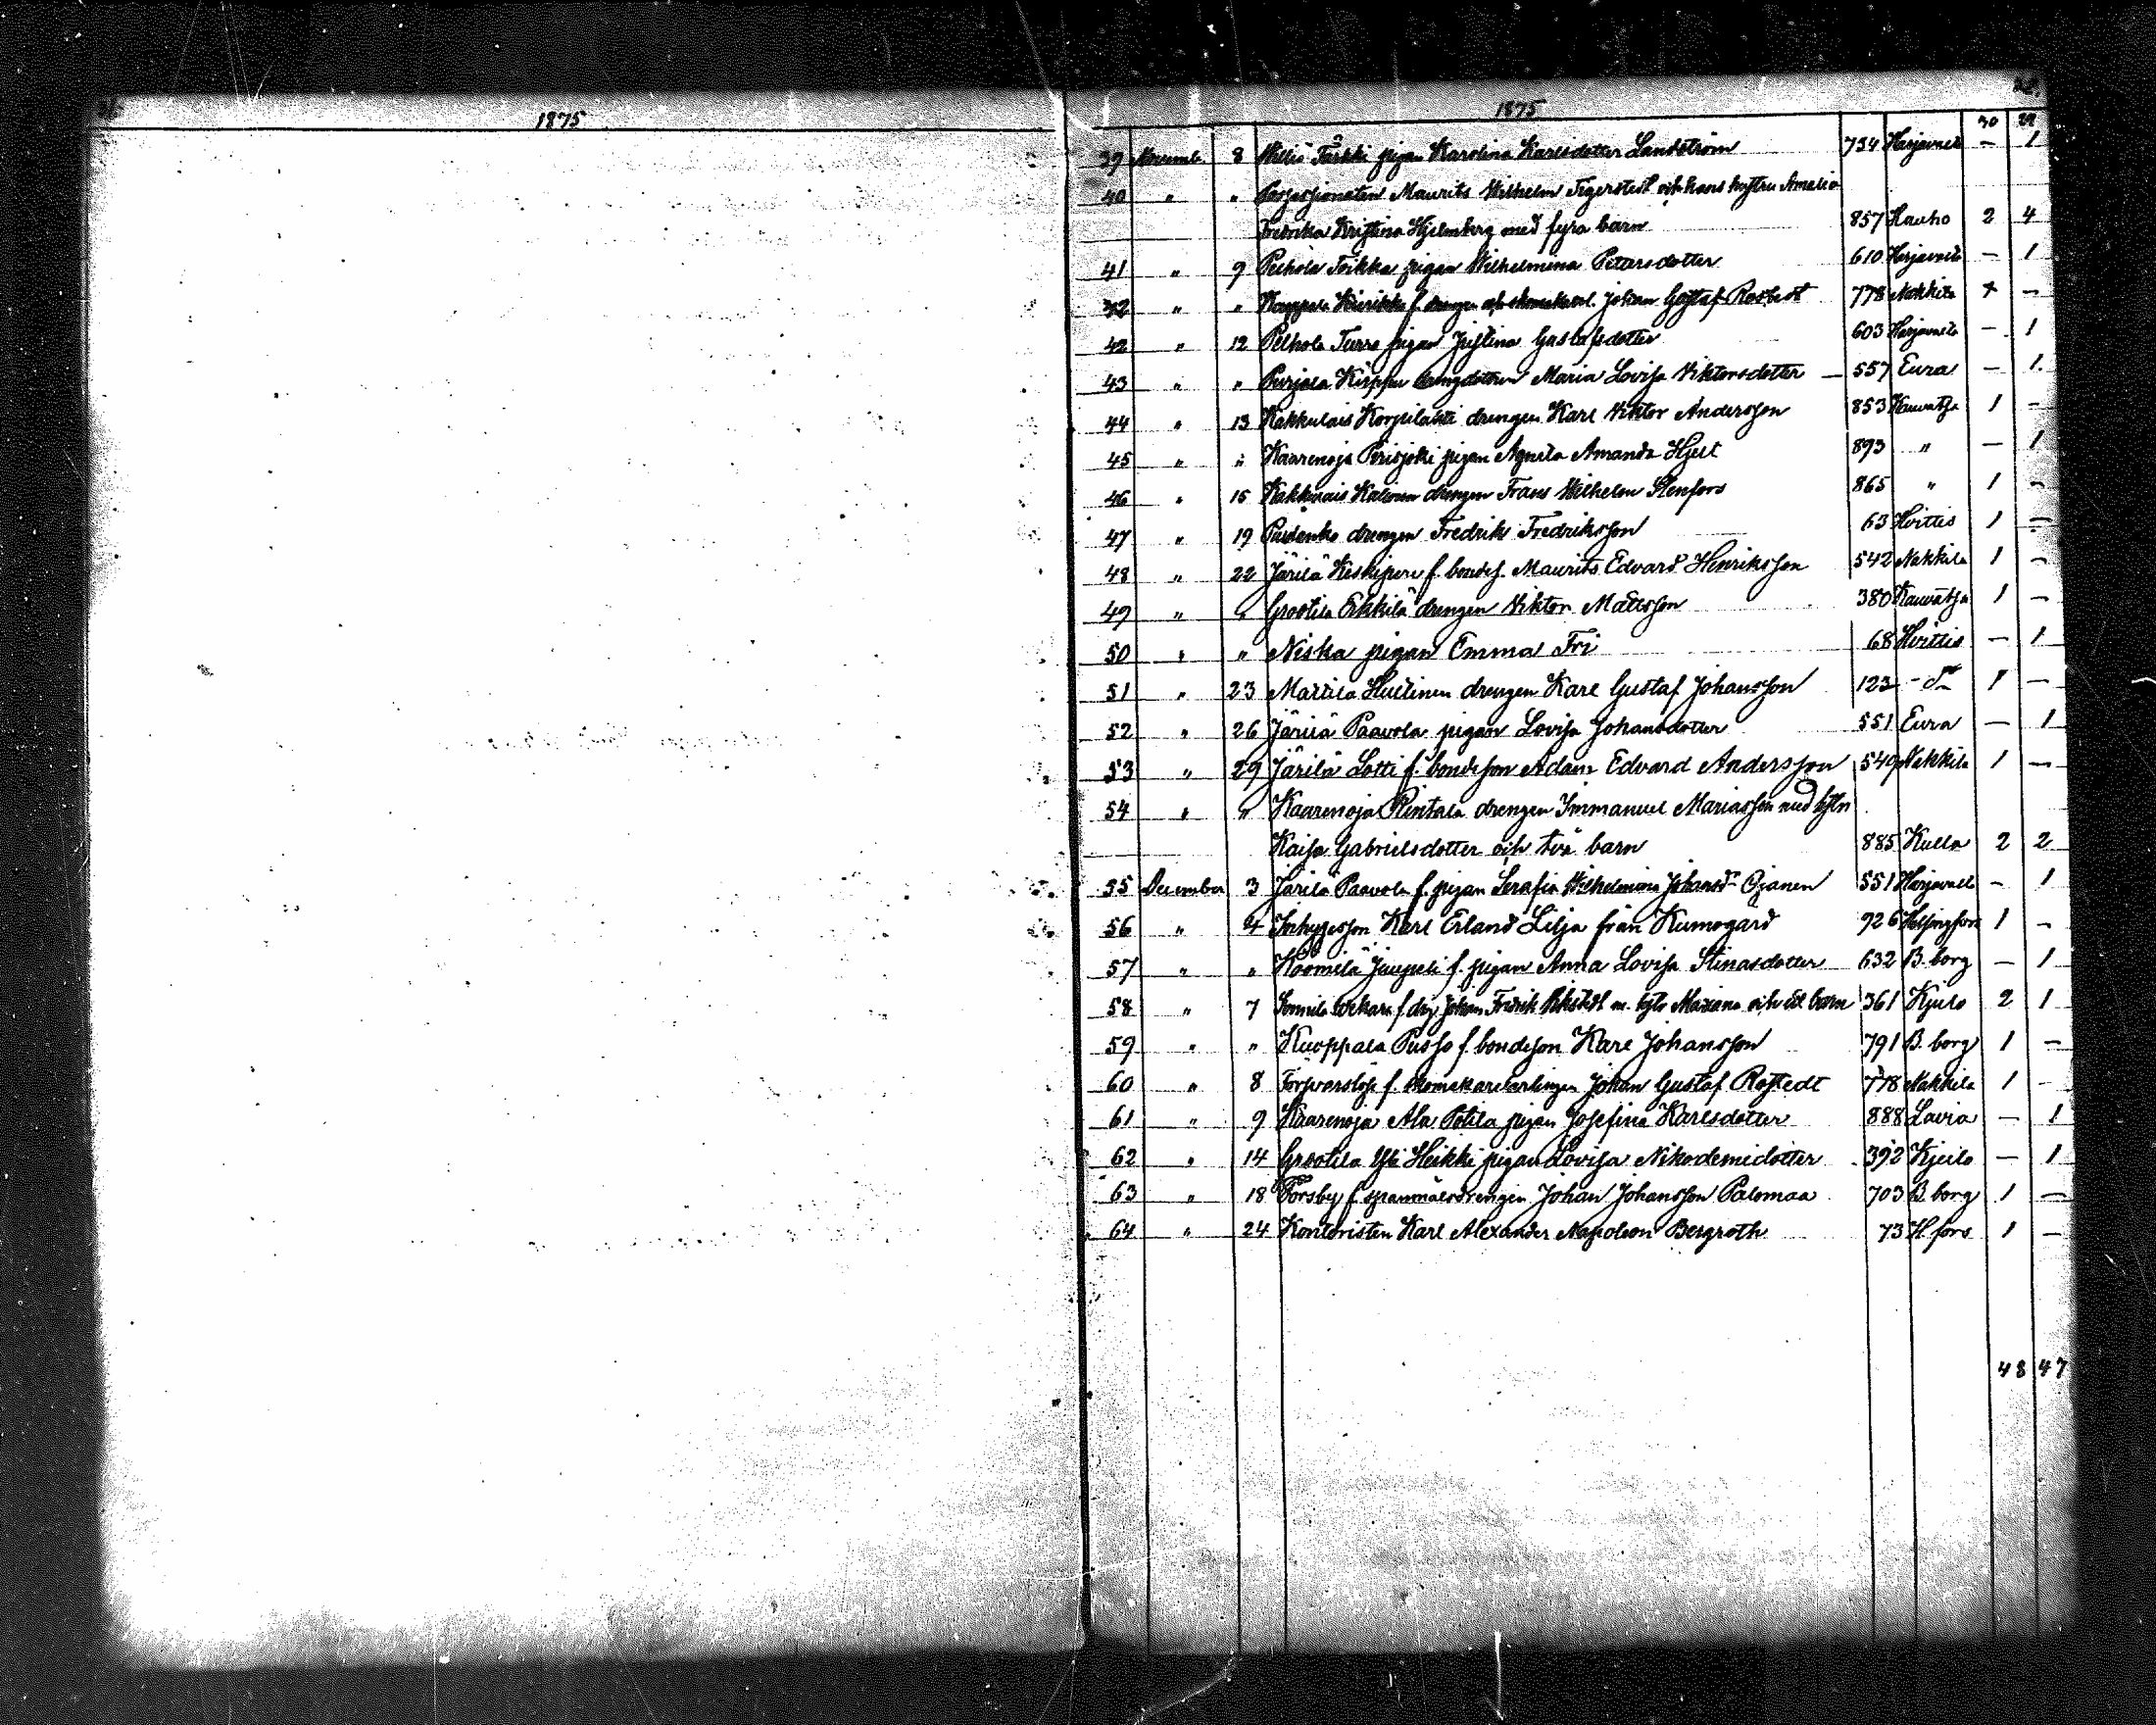 1875
1875
30 29
39 Novemb. 8 Willio Tärkki pigan Karolina Karlsdotter Landström 734 Harjavalt — 1
40 " " Possessionaten Maurits Wilhelm Tigerstedt och hans hustru Amalia
Fredrika Kristina Hjelmberg med fyra barn 857 Hauho 2 4
41 " 9 Peihola Toikka pigan Wilhelmina Pettersdotter 610 Harjavalt — 1
" " f. drengen Johan Gustaf Rostedt 778 Nakkila —
42 " 12 Peihola Turra pigan Justina Gustafsdotter 603 Harjavalt — 1
43 " " Purjala Kirppu drengdottren Maria Lovisa Viktorsdotter — 557 Eura — 1.
44 " 13 Kakkulais Korpilahti drengen Karl Viktor Andersson 853 Kauvatsa 1 —
45 " " Kaarenoja pigan Agneta Amanda Hjert 893 " — 1
46 " 15 Kakkulais drengen Frans Wilhelm Stenfors 865 " 1 —
47 " 19 drengen Fredrik Fredriksson 63 Hvittis 1 —
48 " 22 Järilä Keskipere f. bondes. Maurits Edvard Henriksson 542 Nakkila 1 —
49 " " Grootila Erkkilä drengen Viktor Mattsson 380 Kauvatsa 1 —
50 " " Niska pigan Emma Fri 68 Hvittis — 1
51 " 23 Mattila Huilinen drengen Karl Gustaf Johansson 123 - d:o 1 —
52 " 26 Järilä Paavola pigan Lovisa Johansdotter 551 Eura — 1
53 " 29 Järilä Lotti f. bondeson Adam Edvard Andersson 549 Nakkila 1 —
54 " " Kaarenoja Rintala drengen Immanuel Mariasson med hstn
Kaisa Gabrielsdotter och två barn 885 Kulla 2 2
55 December 3 Järilä Paavola f. pigan Serafia Wilhelmina Johansd:r Ojanen 551 Harjavalt — 1
56 " 4 Inhysesson Karl Erland Lilja från Kumogard 926 Helsingfors 1 —
57 " " Köömilä Jaupeli f. pigan Anna Lovisa Stinasdotter 632 B.borg — 1
58 " 7 f. drg Johan Fredrik m. hstr Mariana och ett barn 361 Kjulo 2 1
59 " " Kuoppala Pusso f. bondeson Karl Johansson 791 B.borg 1 —
60 " 8 Försvarslöse f. skomakarelärlingen Johan Gustaf Rostedt 778 Nakkila 1 —
61 " 9 Kaarenoja Ala Potila pigan Josefina Karlsdotter 888 Lavia — 1
62 " 14 Grootila Yli Heikki pigan Lovisa Nikodemidotter 392 Kjulo — 1
63 " 18 Forsby f. spannmålsdrengen Johan Johansson Palomaa 703 B.borg 1 —
64 " 24 Kontoristen Karl Alexander Napoleon Bergroth 73 H.fors 1 —
48 47